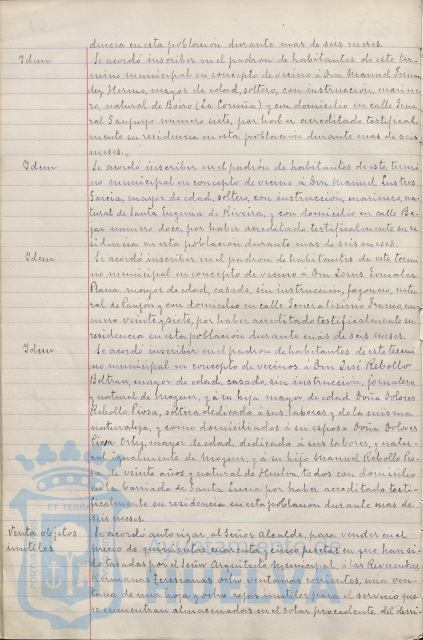 dencia en esta población durante mas de seis meses.
Idem Se acordó inscribir en el padron de habitantes de este ter-
mino municipal en concepto de vecino á Don Manuel Fernan
dez Hermo, mayor de edad, soltero, con instruccion, marine
ro, natural de Boiro (La Coruña) y con domicilio en calle Gene
ral Sanjurjo numero siete, por haber acreditado testifical
mente su residencia en esta población durante mas de seis
meses.
Idem Se acordó inscribir en el padrón de habitantes de este termi
no municipal en concepto de vecino á Don Manuel Lustres
Garcia, mayor de edad, soltero, con instruccion, marinero, na-
tural de Santa Eugenia de Riveira, y con domicilio en calle Be
jar numero doce, por haber acreditado testificalmente su re
sidencia en esta población durante mas de seis meses.
Idem Se acordó inscribir en el padron de habitantes de este termi
no municipal en concepto de vecino á Don
Plana, mayor de edad, casado, sin instruccion, fogonero, natu
ral de y con domicilio en calle Generalisimo Franco, nu-
mero veinte y siete, por haber acreditado testificalmente su
residencia en esta población durante mas de seis meses.
Idem Se acordó inscribir en el padron de habitantes de este termi
no municipal en concepto de vecinos á Don José Rebollo
Beltran, mayor de edad, casado, sin instruccion, jornalero
y natural de Moguer, y á su hija mayor de edad Doña Dolores
Rebollo soltera dedicada á sus labores y de la misma
naturaleza, y como domiciliados á su esposa Doña Dolores
Ortiz, mayor de edad, dedicada á sus labores, y natu-
ral igualmente de Moguer, y á su hijo Manuel Rebollo
de veinte años y natural de Huelva, todos con domicilio
en la barriada de Santa Lucia por haber acreditado testi-
ficalmente su residencia en esta poblacion durante mas de
seis meses.
Venta objetos Se acordó autorizar al Señor Alcalde, para vender en el
inutiles. precio de quinientas cuarenta y cinco pesetas en que han si-
do tasadas por el Señor Arquitecto Municipal, á las Reverendas
Hermanas Teresianas ocho ventanas corrientes, una ven-
tana de una hoja y ocho rejas inutiles para el servicio que
se encuentran almacenadas en el solar procedente del derri-